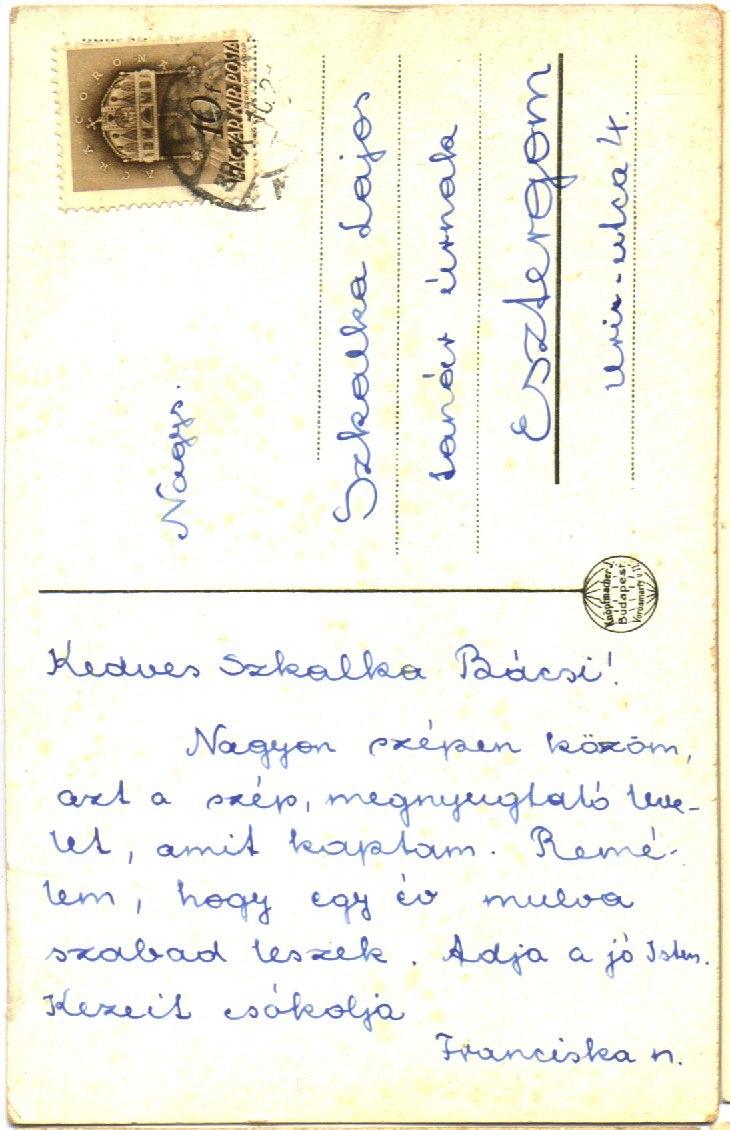 SACRA CORONA
10 f
MAGYAR KIR. POSTA
Nagys.
Szkalka Lajos
tanár úrnak
Esztergom
Uri-utca 4.
Knöpfmacher
Budapest
Vörösmarty u
Kedves Szkalka Bácsi!
Nagyon szépen közöm,
azt a szép, megnyugtató leve-
let, amit kaptam. Remé-
lem, hogy egy év mulva
szabad leszek. Adja a jó Isten.
Kezeit csókolja
Franciska n.